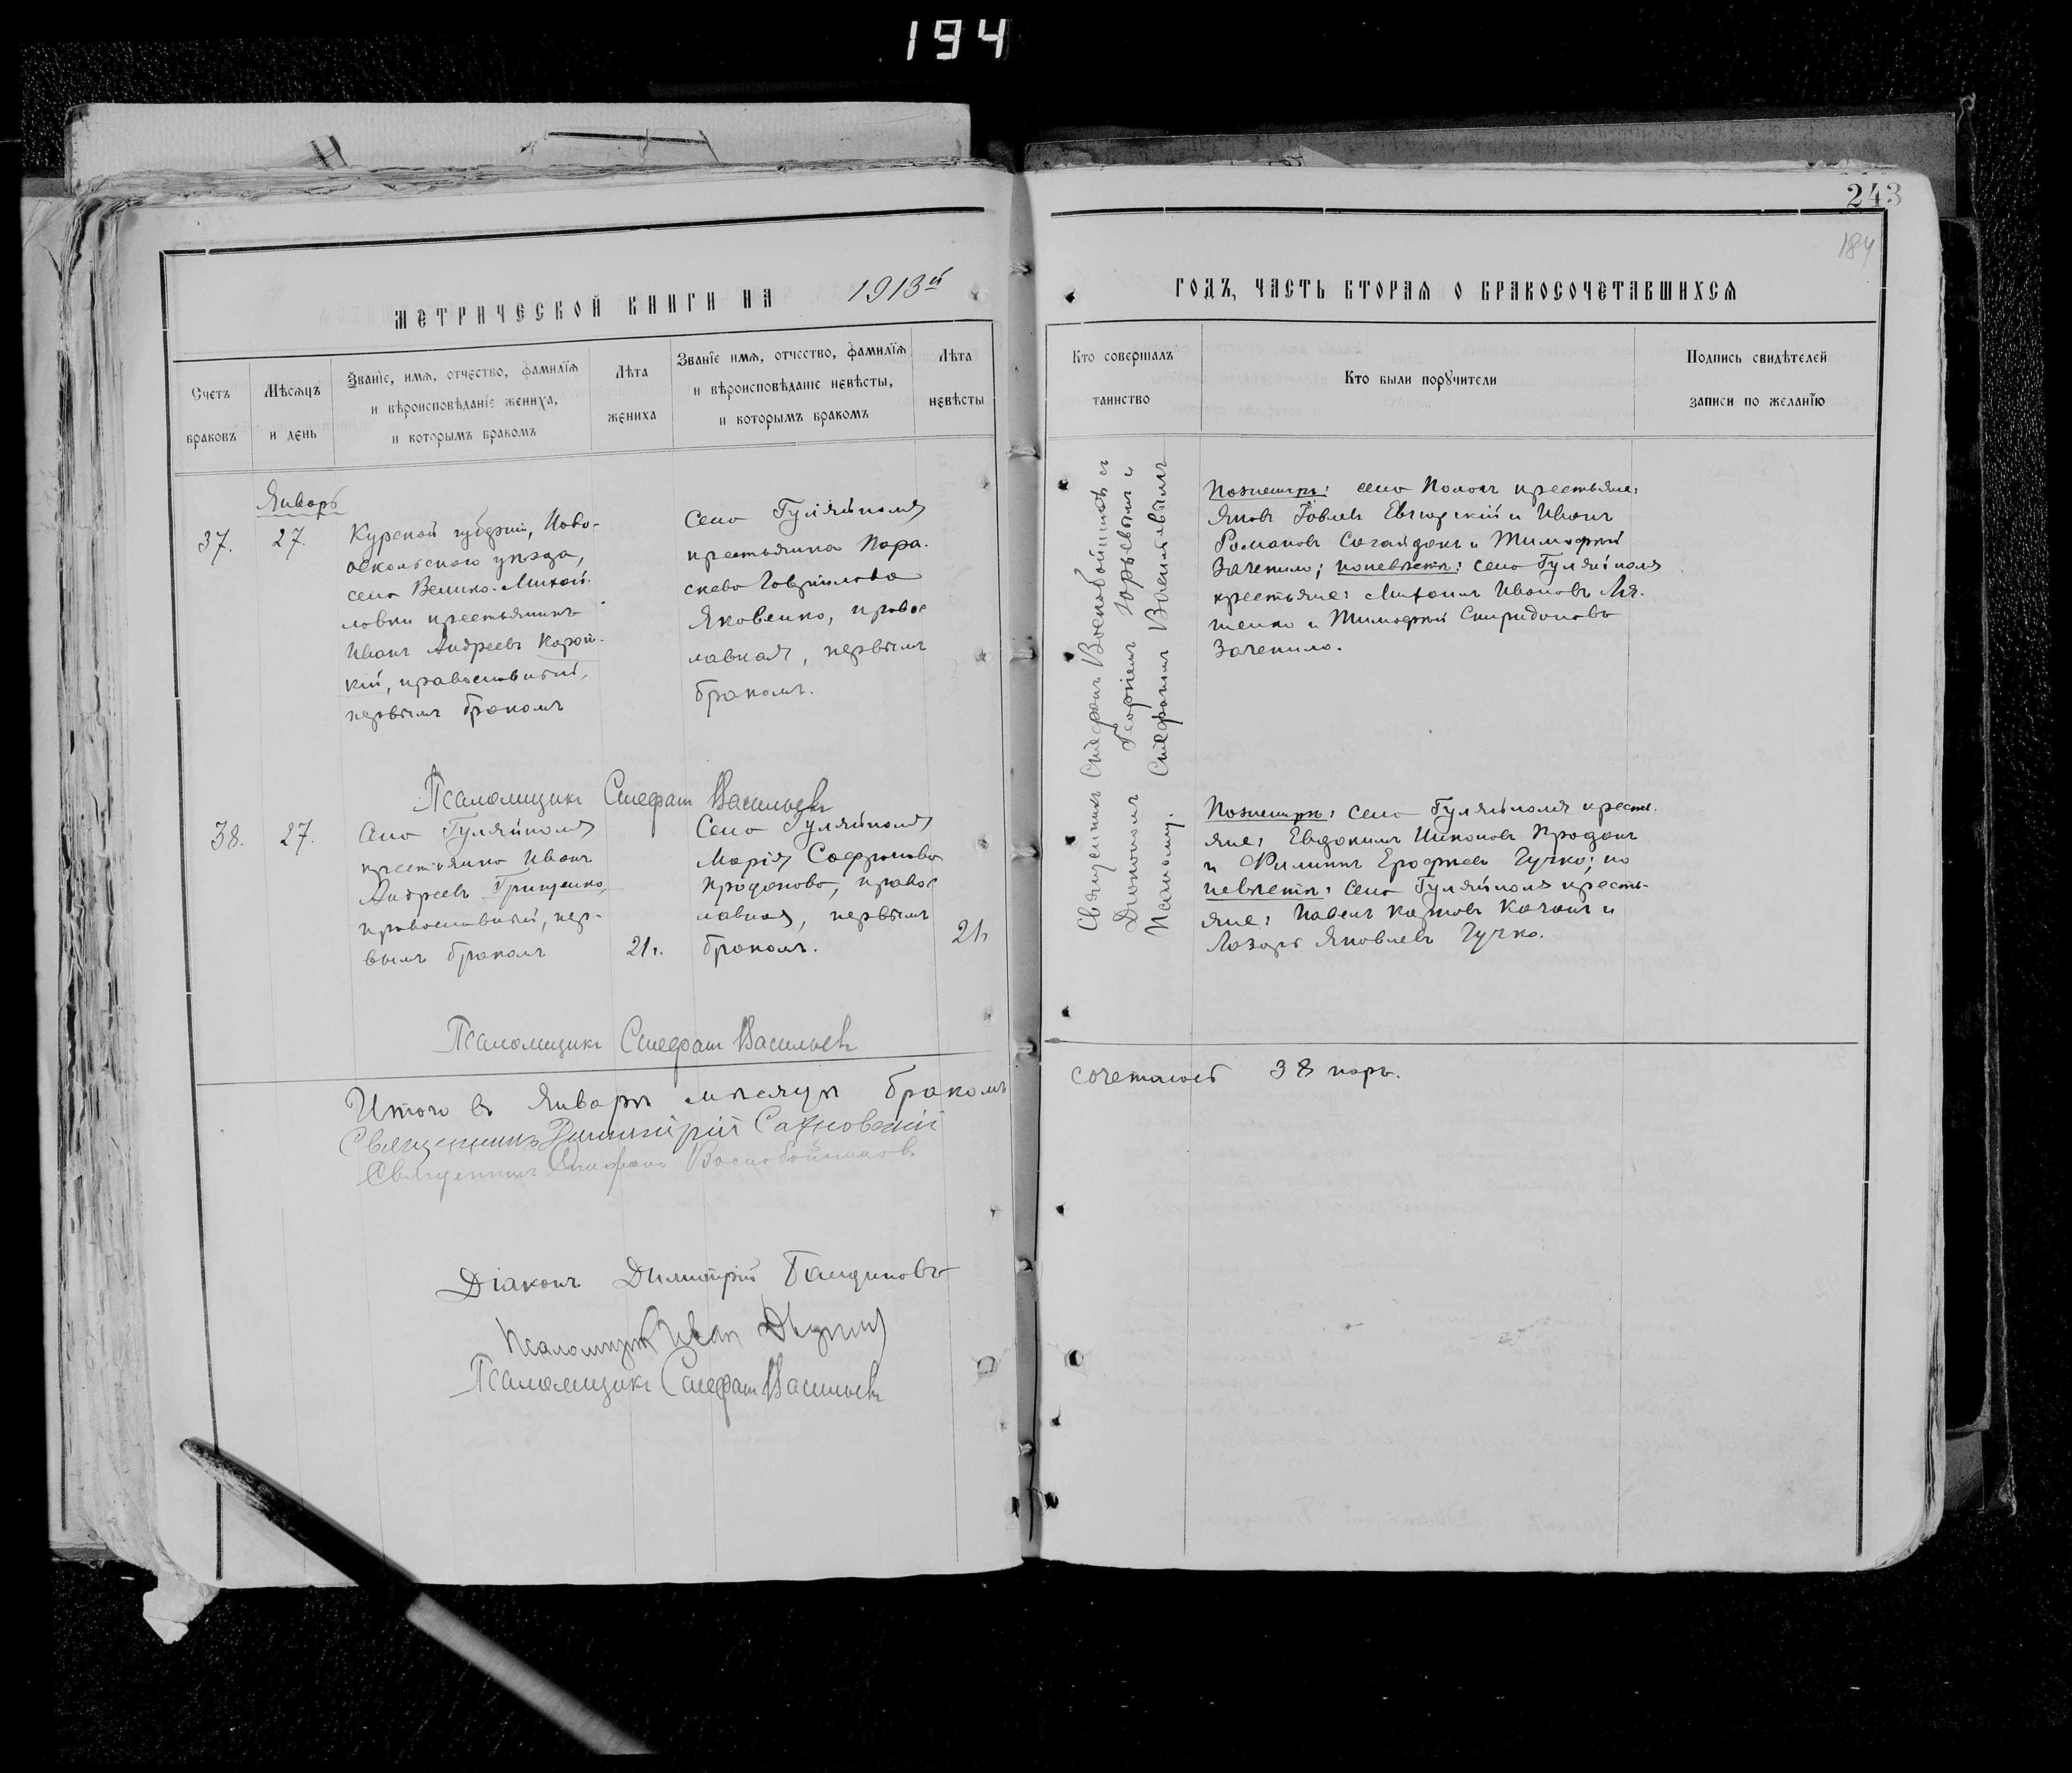 194
243
184
МЕТРИЧЕСКОЙ КНИГИ НА 1913й
ГОДЪ, ЧАСТЬ ВТОРАЯ О БРАКОСОЧЕТАВШИХСЯ
Счетъ браковъ
Мѣсяцъ и день
Званїе, имя, отчество, фамилїя
и вѣроисповѣданїе жениха,
и которымъ бракомъ
Лѣта жениха
Званїе имя, отчество, фамилїя
и вѣроисповѣданїе невѣсты,
и которымъ бракомъ
Лѣта невѣсты
Кто совершалъ таинство
Кто были поручители
Подпись свидѣтелей
записи по желанїю
Январь
37.
27.
Курской губерніи, Ново-
оскольскаго уѣзда,
села Велико-Михай-
ловки крестьянинъ
Иванъ Андреевъ
кій, православный,
первымъ бракомъ
Села Гуляйполя
крестьянка Пара-
скева Гавріилова
Яковенко, правос
лавная, первымъ
бракомъ.
Священникъ Стефанъ Воскобойниковъ съ
Діакономъ Георгіемъ Юрьевымъ и
Псаломщ. Стефаномъ Васильевымъ
По женихѣ: села Пологъ крестьяне:
Яковъ и Иванъ
Романовъ Сагайдакъ и Тимофей
Зачепило; по невѣстѣ: села Гуляйполя
крестьяне: Михаилъ Ивановъ Ля-
шенко и Тимофей Спиридоновъ
Зачепило.
Псаломщикъ Стефанъ Васильевъ
38.
27.
Села Гуляйполя
крестьянинъ Иванъ
Андреевъ Грищенко,
православный, пер-
вымъ бракомъ
21 г.
Села Гуляйполя
Марія Софронова
Проданова, правос
лавная, первымъ
бракомъ.
21
По женихѣ: села Гуляйполя кресть
яне: Евдокимъ Никоновъ Проданъ
и Филиппъ Ерофеевъ Гучко; по
невѣстѣ: села Гуляйполя кресть-
яне: Павелъ Карповъ Качанъ и
Лазарь Яковлевъ Гучко.
Псаломщикъ Стефанъ Васильевъ
Итого въ Январѣ мѣсяцѣ бракомъ
сочеталось 38 паръ.
Священникъ Димитрій Сахновскій
Священникъ Стефанъ Воскобойниковъ
Діаконъ Димитрій
Псаломщикъ Иван
Псаломщикъ Стефанъ Васильевъ